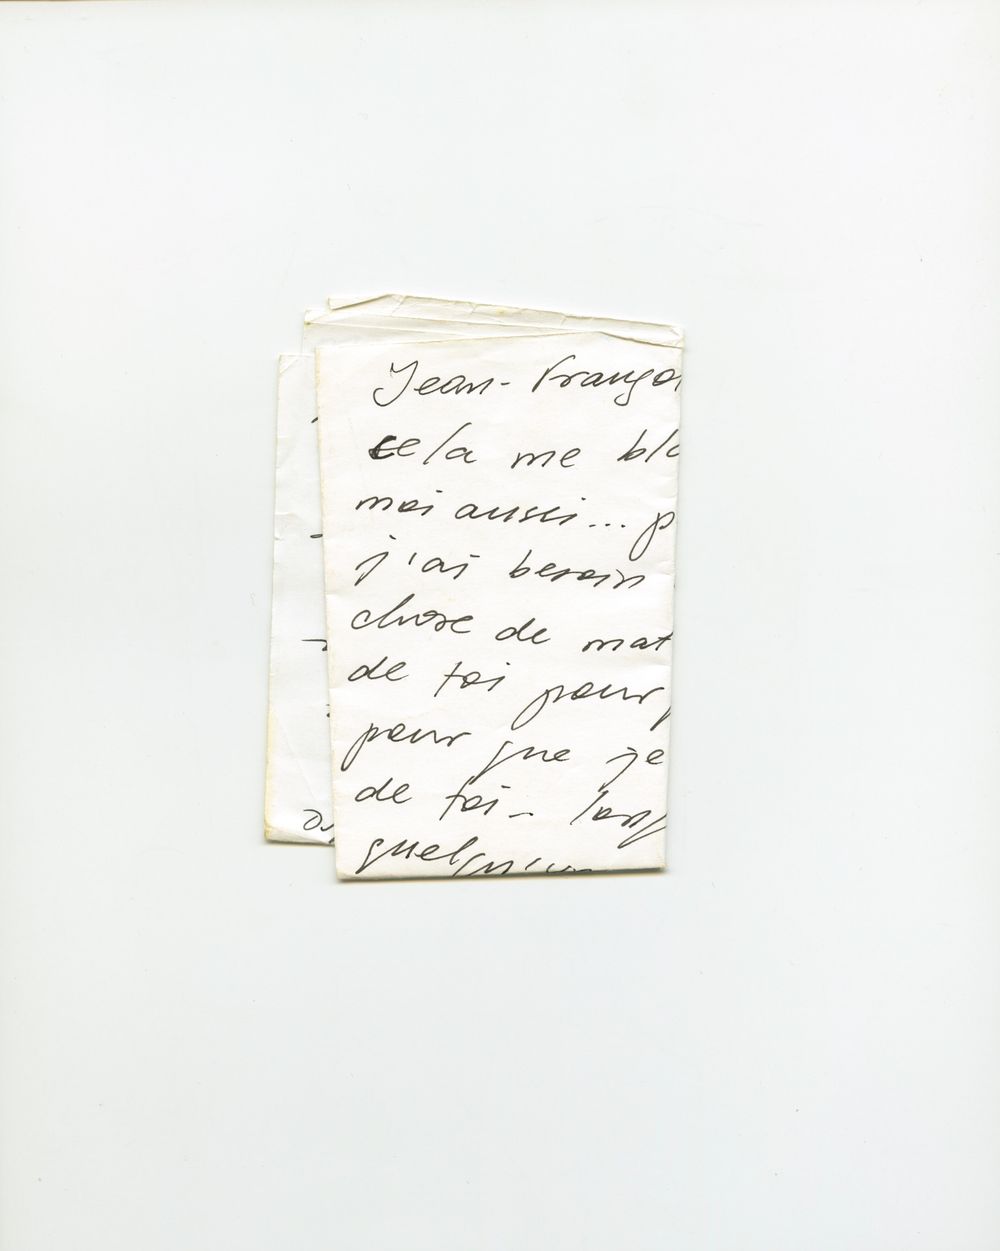 Jean-Franço
cela me blo
moi aussi... p
j'ai besoin
chose de mat
de toi pour
pour que je
de toi - lors
quelqu'un